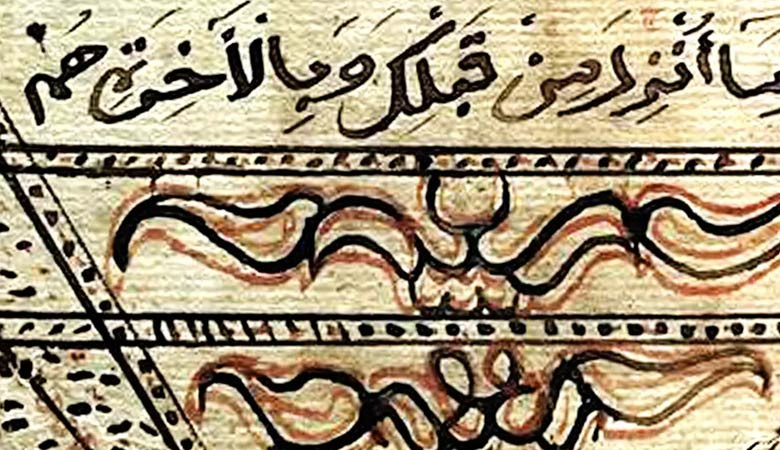 ما أُنْزِلَ مِنْ قَبْلِكَ وَبِالْأَخِرَةِ هُمْ